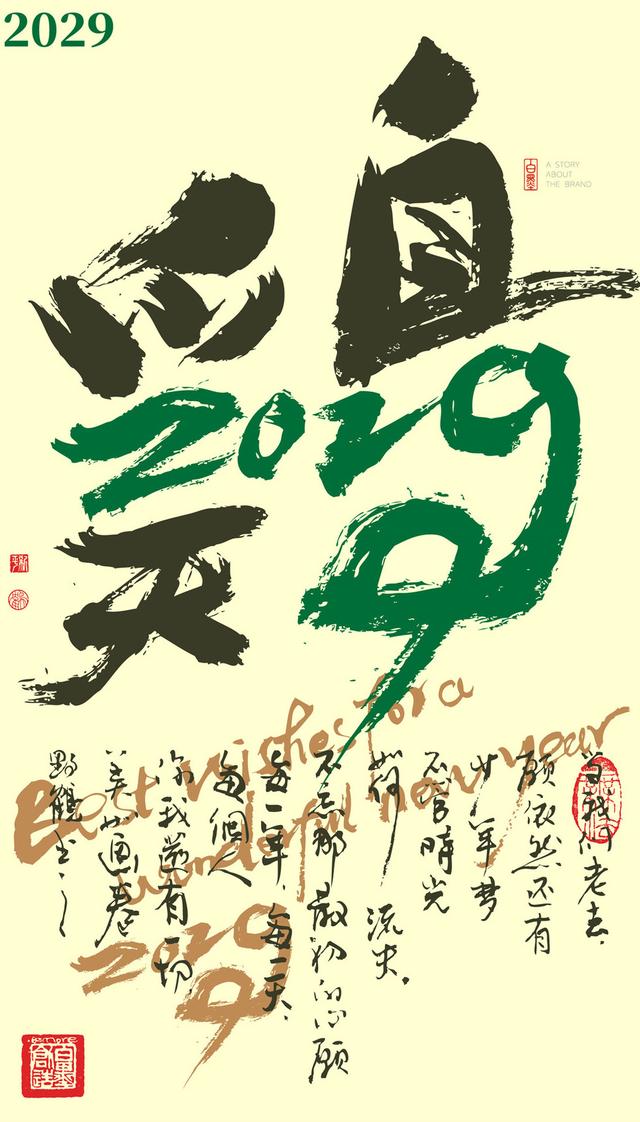 2029
A STORY
ABOUT
THE BRAND
2029
天
Best wishes for a
wonderful new year
2029
當我们老去，
願依然还有
少年梦
不管時光
如何流失，
不忘那最初的心願
每一年，每一天，
每個人
你我還有一切
美如画卷
野鶴书